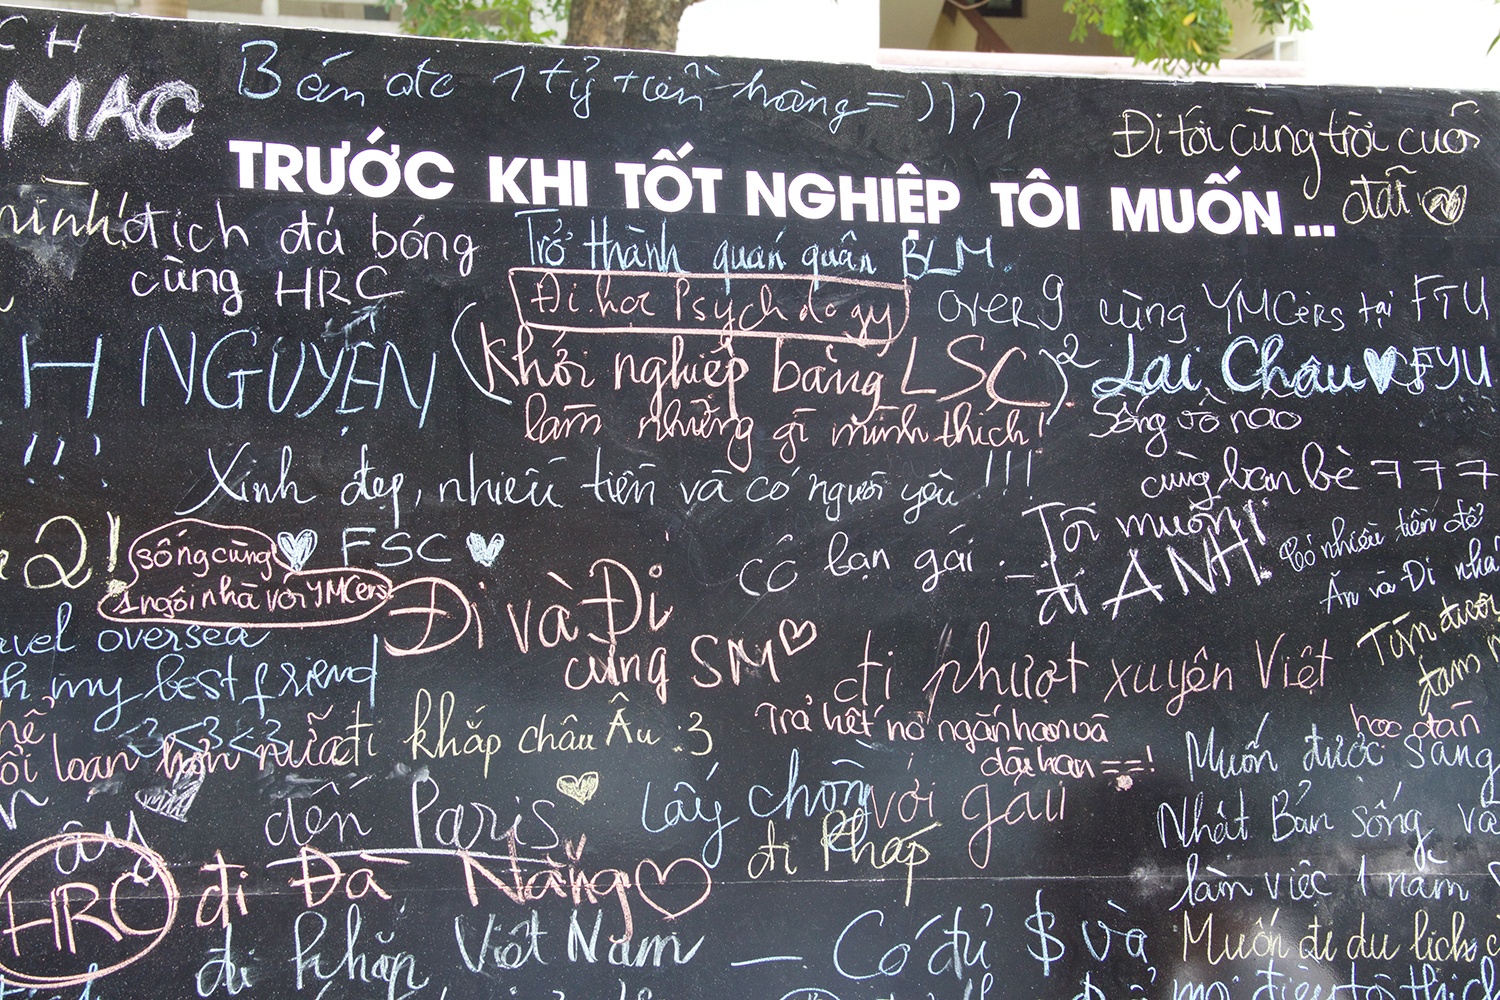 CH
MAC
Bán đc 1 tỷ tiền hàng =))))
Đi tới cùng trời cuối
đất
TRƯỚC KHI TỐT NGHIỆP TÔI MUỐN...
mình!
địch đá bóng
cùng HRC
Trở thành quán quân BLM.
Đi học Psychology
over 9
cùng YMCers tại FTU
H NGUYỆN
!!!
(Khởi nghiệp bằng LSC)²
làm những gì mình thích!
Lai Châu
FYU
Sống vô nao
cùng bạn bè 777
Xinh đẹp, nhiều tiền và có người yêu !!!
2!
sống cùng
1 ngôi nhà với YMCers
FSC
có bạn gái
Tôi muốn
đi ANH!
Có nhiều tiền để
Ăn và Đi nhà
Đi và Đi
cùng SM
avel oversea
h my best friend
<3 <3 <3
đi phượt xuyên Việt
Tìm được
đam
hế
ôi loan hơn nữa
đi khắp châu Âu :3
Trả hết nợ ngắn hạn và
dài hạn ==!
học đàn
Muốn được sang
Nhật Bản sống và
làm việc 1 năm
đến Paris
lấy chồng
với gấu
đi Pháp
ây
HRC
đi Đà Nẵng
đi khắp Việt Nam
Có đủ $ và
Muốn đi du lịch